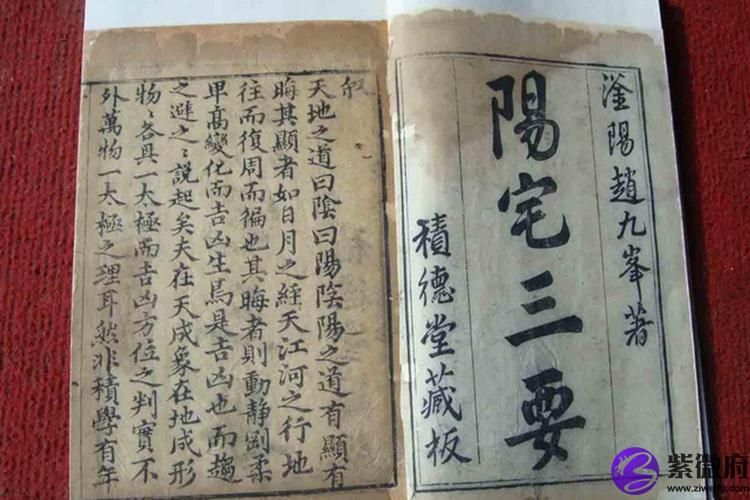 滏陽趙九峯著
陽宅三要
積德堂藏板
叙
天地之道曰陰曰陽陰陽之道有顯有
晦其顯者如日月之經天江河之行地
往而復周而徧也其晦者則動静剛柔
甲髙變化而吉凶生焉是吉凶也而趨
之避之〻説起矣夫在天成象在地成形
物〻各具一太極而吉凶方位之判實不
外萬物一太極之理耳然非積學有年
紫微府
www.ziweifu.com